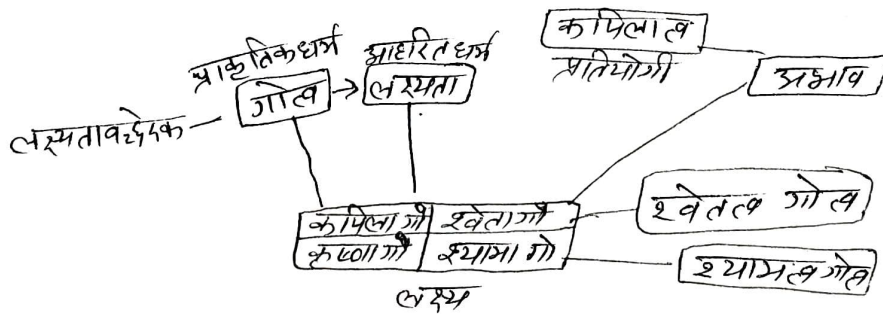 प्राकृतिक धर्म
आहरित धर्म
कपिलात्व
प्रतियोगी
अभाव
गोत्व
लक्ष्यता
लक्ष्यतावच्छेदक
कपिला गौ
श्वेता गौ
कृष्णा गौ
श्यामा गो
लक्ष्य
श्वेतत्व गोत्व
श्यामत्व गोत्व